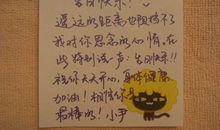 生日快乐!
遥远的距离也阻挡不了
我对你思念的心情。在
此特别说一声:生日快乐!!
祝你天天开心,身体健康
加油!相信你是
最棒的!小尹